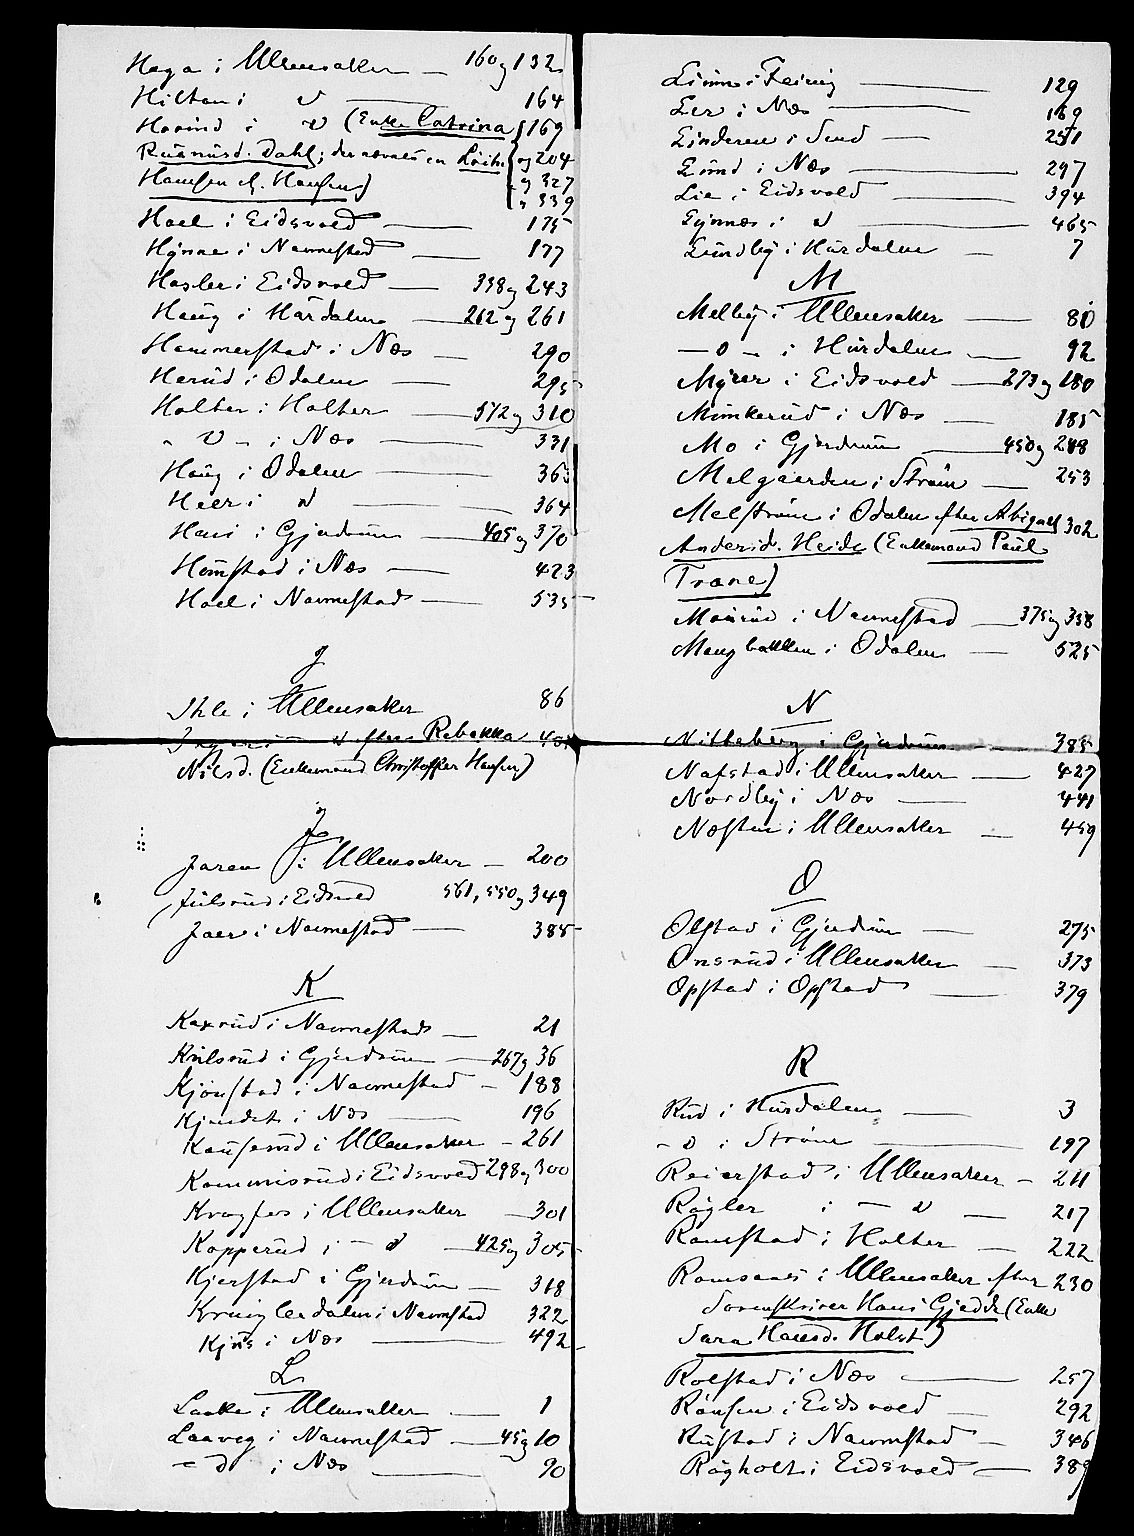 Haga i Ullensaker — 160 og 132
Hilton i d — 164
Hovind i d (Enke Catrina 169
Rasmusd. Dahl; der nævnes en Løitn. og 204
Hansen el. Hansen) og 327
" 339
Hoel i Eidsvold — 175
Hynne i Nannestad — 177
Hasler i Eidsvold — 338 og 243
Haug i Hurdalen — 262 og 261
Hammerstad i Næs — 290
Herud i Odalen — 295
Holter i Holter — 572 og 310
" d — i Næs — 331
Haug i Odalen — 363
Heer i d — 364
Hani i Gjerdrum — 405 og 370
Homstad i Næs — 423
Hoel i Nannestad — 535
I
Ihle i Ullensaker 86
d efter Rebekka
Nilsd. (Enkemand Christoffer Hansen)
J
Jaren i Ullensaker — 200
Julsrud i Eidsvold 561, 550 og 349
Jaer i Nannestad — 385
K
Kaxrud i Nannestad — 21
Kulsrud i Gjerdrum — 267 og 36
Kjønstad i Nannestad — 188
Kjendet i Næs — 196
Kauserud i Ullensaker — 261
Kommisrud i Eidsvold 298 og 300
Kragfos i Ullensaker — 301
Kopperud i — d — 425 og 305
Kjerstad i Gjerdrum — 318
Kringlerdalen i Nannestad 322
Kjus i Næs — 492
L
Laake i Ullensaker — 1
Laaveg i Nannestad — 45 og 10
— d i Næs — 90
Linnes i Feiring — 129
Ler i Næs — 169
Linderen i Sund — 251
Lund i Næs — 297
Lie i Eidsvold — 394
Lynnæs i d — 465
Lundby i Hurdalen — 7
M
Melby i Ullensaker — 80
— o — i Hurdalen — 92
Myrer i Eidsvold — 273 og 180
Munkerud i Næs — 185
Mo i Gjerdrum — 450 og 248
Melgaarden i Strøm — 253
Melstrøm i Odalen efter Abigael 302
Andersd. Heide (Enkemand Paul
Trane)
Maurud i Nannestad — 375 og 358
Mangbakken i Odalen — 525
N
Nitteberg i Gjerdrum — 385
Nafstad i Ullensaker — 427
Nordby i Næs — 441
Næsten i Ullensaker — 459
O
Olstad i Gjerdrum — 275
Onsrud i Ullensaker — 373
Opstad i Opstad — 379
R
Rud i Hurdalen — 3
— o i Strøm — 197
Reierstad i Ullensaker — 211
Røgler i — d — 217
Ramstad i Holter — 222
Ramsaas i Ullensaker efter 230
Sorenskriver Hans Gjedde (Enke
Sara Hansd. Holst)
Rolstad i Næs — 257
Rønsen i Eidsvold — 292
Rustad i Nannestad — 346
Røgholt i Eidsvold — 389